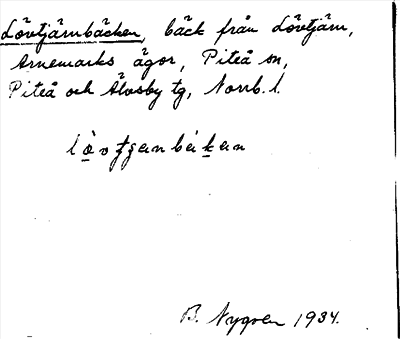 Lövtjärnbäcken, bäck från Lövtjärn,
Arnemarks ägor, Piteå sn,
Piteå och Älvsby tg, Norrb. l.
B. Nygren 1934.